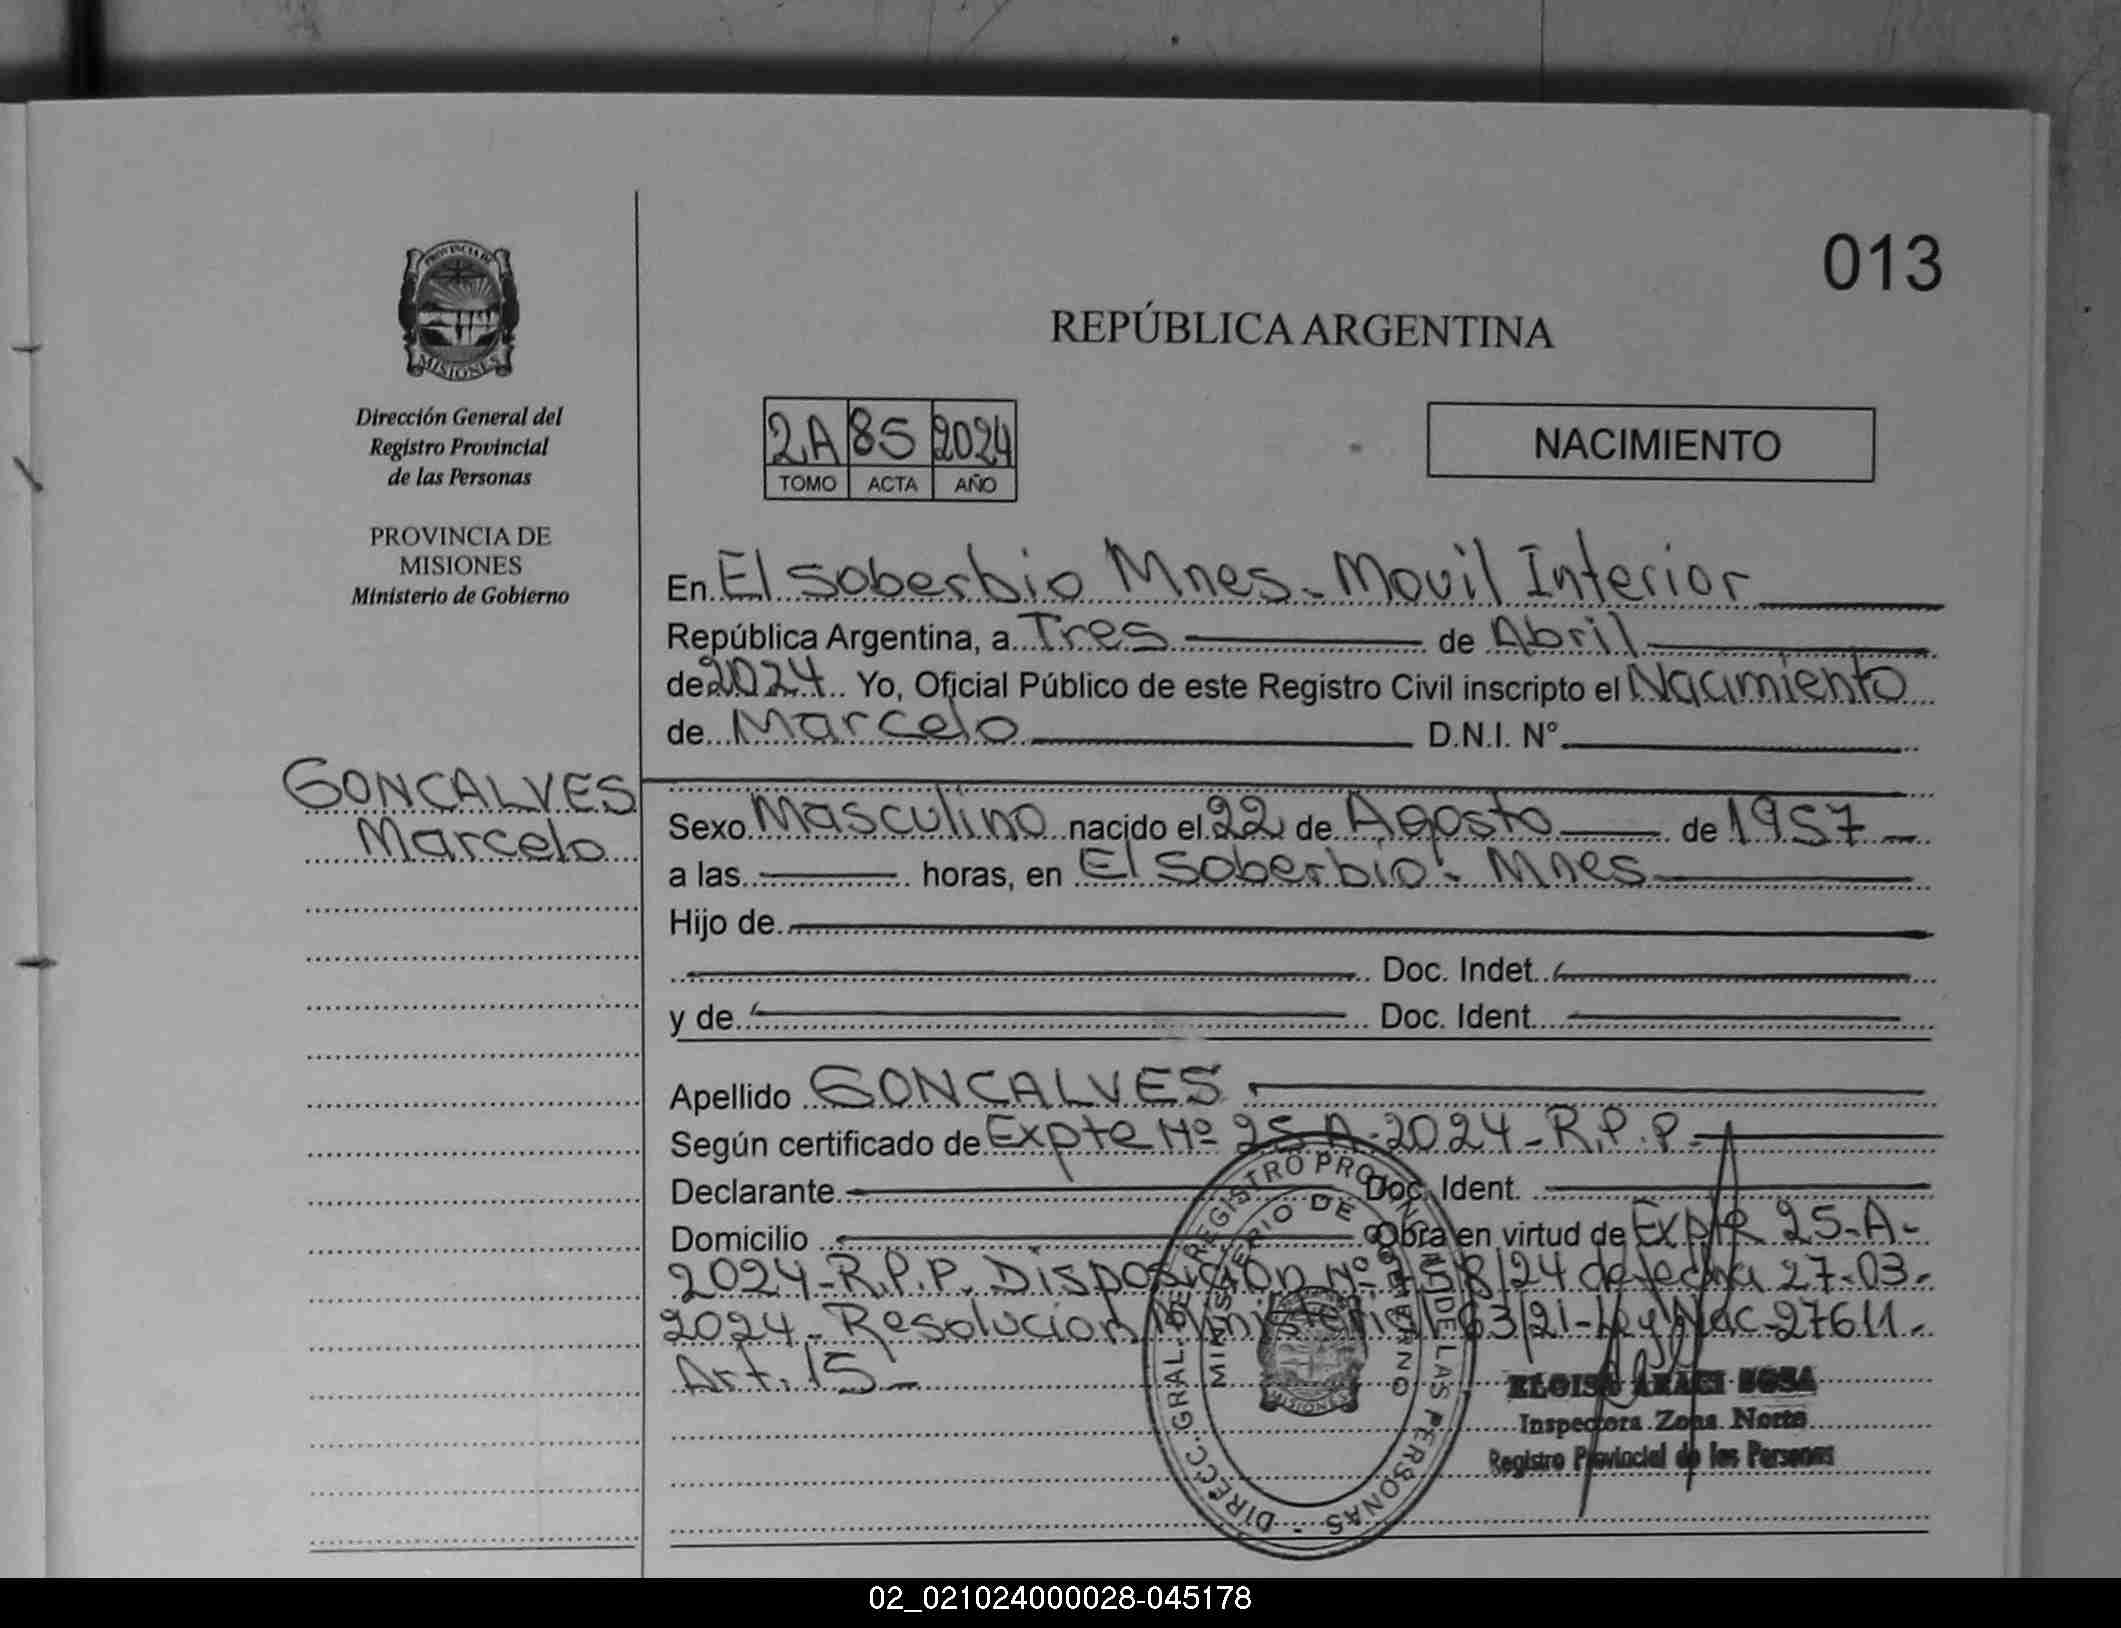 PROVINCIA DE
MISIONES
Dirección General del
Registro Provincial
de las Personas
PROVINCIA DE
MISIONES
Ministerio de Gobierno
GONCALVES
Marcelo
013
REPÚBLICA ARGENTINA
2A 85 2024
TOMO ACTA AÑO
NACIMIENTO
En El Soberbio Mnes - Movil Interior
República Argentina, a Tres de Abril
de 2024 Yo, Oficial Público de este Registro Civil inscripto el Nacimiento
de Marcelo D.N.I. Nº
Sexo Masculino nacido el 22 de Agosto de 1957
a las horas, en El Soberbio - Mnes
Hijo de
Doc. Indet.
y de Doc. Ident.
Apellido GONCALVES
Según certificado de Expte Nº 25 A-2024-R.P.P.
Declarante Doc. Ident.
Domicilio Obra en virtud de Expte 25-A-
2024-R.P.P. Disposición Nº /24 de fecha 27-03-
2024-Resolucion Ministerial 63/21-Ley Nac-27611-
Art. 15-
DIRECC. GRAL. DE REGISTRO PROVINCIAL DE LAS PERSONAS
MINISTERIO DE GOBIERNO
MISIONES
ELOISA ARACI SOSA
Inspectora Zona Norte
Registro Provincial de las Personas
02_021024000028-045178